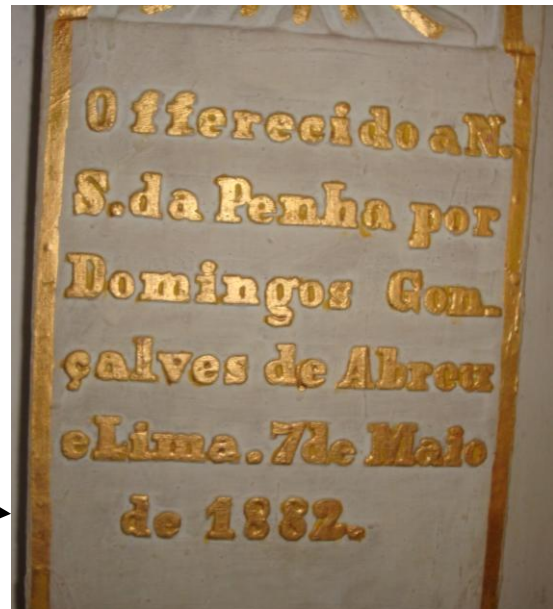 Offerecido a N.
S. da Penha por
Domingos Gon-
çalves de Abreu
e Lima. 7 de Maio
de 1882.